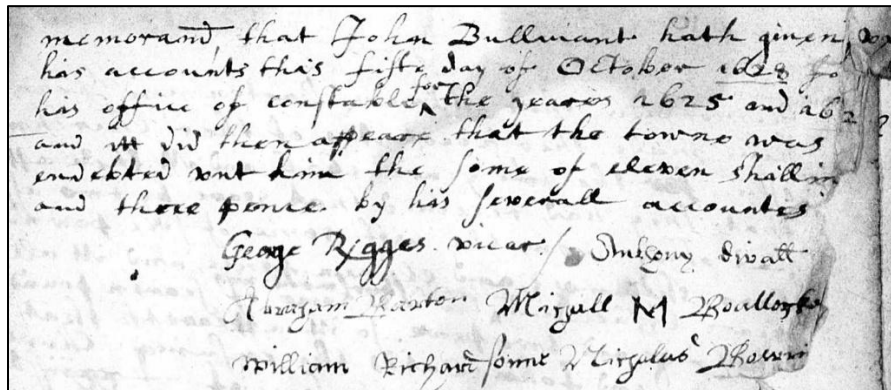 memorand, that John Bulliuant hath giuen
his accounts this fifte day of October 1628 fo
his office of constable for the yeares 1625 and 162
and itt did then appeare that the towne was
endebted vnt him the some of eleven shillin
and three pence by his severall accountes
George Rigges vicar / Anthony
Abraham Barton Mighill M
William Richardsonne Nicholas